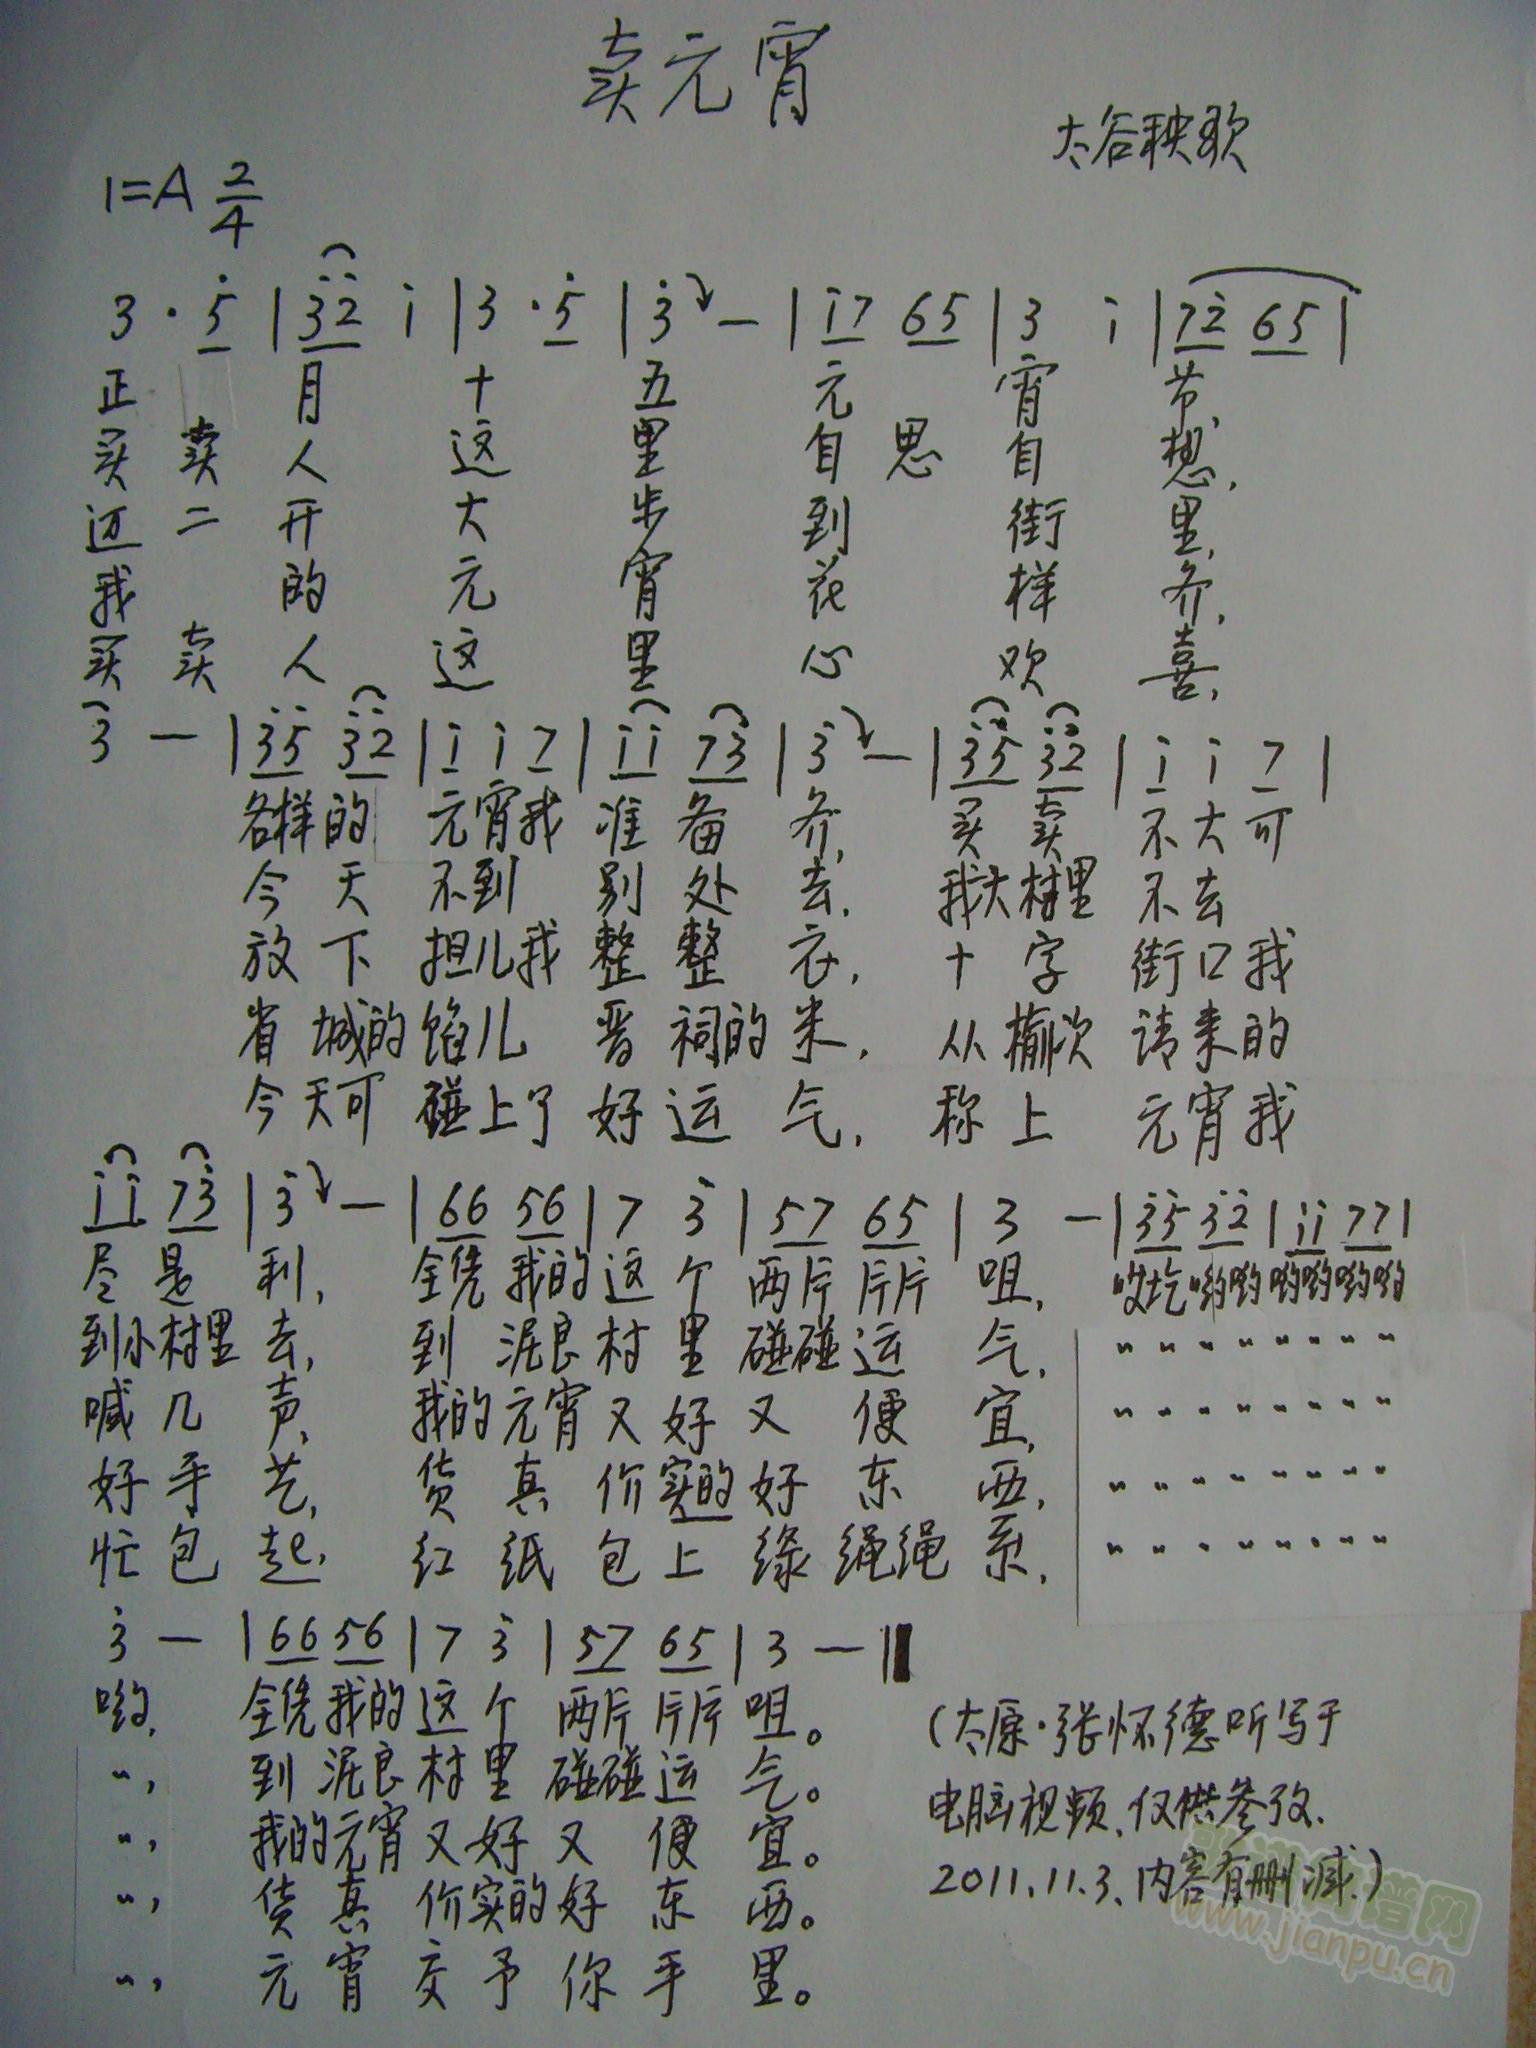 卖元宵
太谷秧歌
1=A 2/4
3 · 5 | 32 i | 3 · 5 | 3 — | i7 65 | 3 i | 72 65 |
正 月 十 五 元 宵 节,
买 卖 人 这 里 自 思 自 想,
迈 二 开 大 步 到 街 里,
我 的 元 宵 花 样 多,
买 卖 人 这 里 心 欢 喜,
3 — | 35 32 | i i 7 | ii 73 | 3 — | 35 32 | i i 7 |
各样的 元宵我 准 备 齐, 买 卖 不大可
今 天 不到 别 处 去, 我大村里 不去
放 下 担儿我 整 整 衣, 十 字 街口我
省 城的 馅儿 晋 祠的 米, 从 榆次 请来的
今 天可 碰上了 好 运 气, 称 上 元宵我
ii 73 | 3 — | 66 56 | 7 3 | 57 65 | 3 — | 35 32 | ii 77 |
尽 是 利, 全凭 我的 这 个 两片 片片 咀, 哎圪 哟哟 哟哟 哟哟
到小村里 去, 到 泥良 村 里 碰碰 运 气, " " " " " " " "
喊 几 声, 我的 元宵 又 好 又 便 宜, " " " " " " " "
好 手 艺, 货 真 价 实的 好 东 西, " " " " " " " "
忙 包 起, 红 纸 包 上 绿 绳绳 系, " " " " " " " "
3 — | 66 56 | 7 3 | 57 65 | 3 — ||
哟, 全凭 我的 这 个 两片 片片 咀。
", 到 泥良 村 里 碰碰 运 气。
", 我的 元宵 又 好 又 便 宜。
", 货 真 价 实的 好 东 西。
", 元 宵 交 予 你 手 里。
(太原·张怀德听写于
电脑视频,仅供参考.
2011.11.3.内容有删减.)
www.jianpu.cn